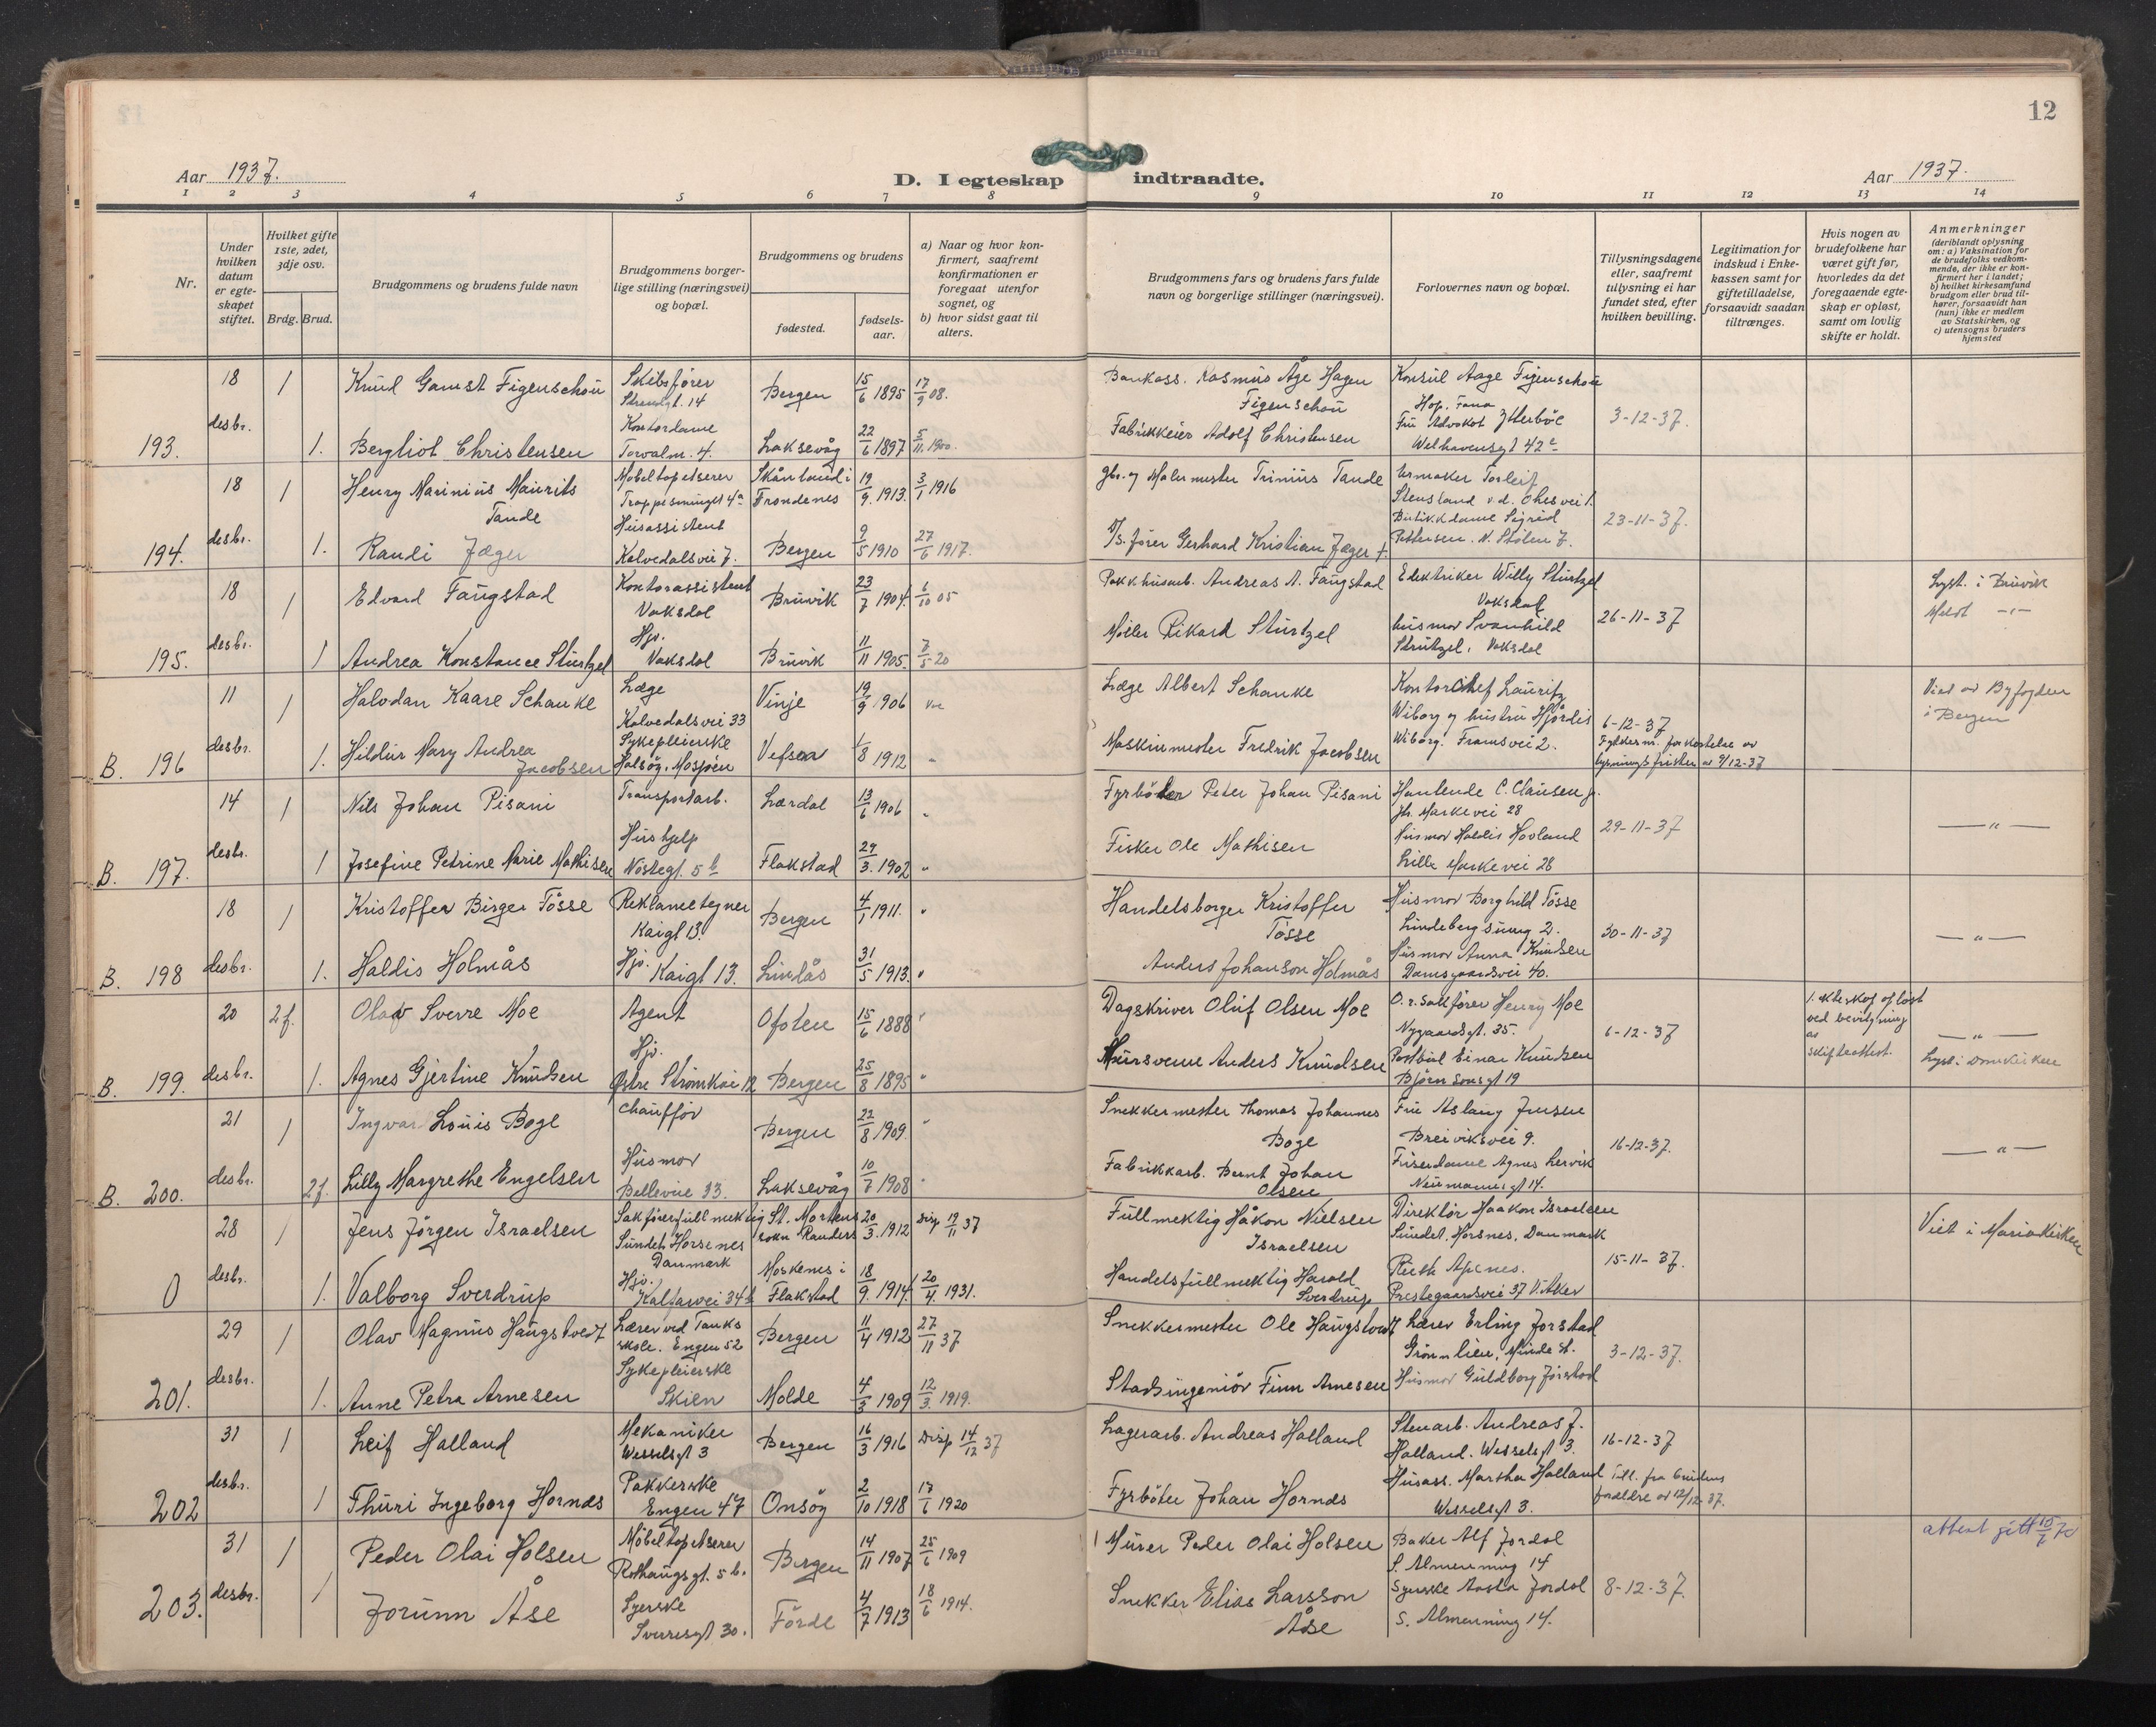 12
Aar 1937.
D. I egteskap indtraadte.
Aar 1937.
1 2 3 4 5 6 7 8 9 10 11 12 13 14
Nr.
Under hvilken datum er egteskapet stiftet.
Hvilket gifte 1ste, 2det, 3dje osv.
Brdg. Brud.
Brudgommens og brudens fulde navn
Brudgommens borgerlige stilling (næringsvei) og bopæl.
Brudgommens og brudens
fødested.
fødselsaar.
a) Naar og hvor konfirmert, saafremt konfirmationen er foregaat utenfor sognet, og
b) hvor sidst gaat til alters.
Brudgommens fars og brudens fars fulde navn og borgerlige stillinger (næringsvei).
Forlovernes navn og bopæl.
Tillysningsdagene eller, saafremt tillysning ei har fundet sted, efter hvilken bevilling.
Legitimation for indskud i Enkekassen samt for giftetilladelse, forsaavidt saadan tiltrænges.
Hvis nogen av brudefolkene har været gift før, hvorledes da det foregaaende egteskap er opløst, samt om lovlig skifte er holdt.
Anmerkninger
(deriblandt oplysning om: a) Vaksination for de brudefolks vedkommende, der ikke er konfirmert her i landet; b) hvilket kirkesamfund brudgom eller brud tilhører, forsaavidt han (hun) ikke er medlem av Statskirken, og c) utensogns bruders hjemsted
18 1 Knud Gamst Figenschou Skibsfører Strandgt. 14 Bergen 15/6 1895 17/9 08. Bankass. Rasmus Åge Hagen Figenschou Konsul Aage Figenschou Hop. Fana 3-12-37.
193. desbr. 1. Bergliot Christensen Kontordame Torvalm. 4. Laksevåg 22/6 1897 5/11 1900. Fabrikkeier Adolf Christensen Fru Advokat Ytterbøe Welhavensgt 42
18 1 Henry Marinius Maurits Tande Møbeltapetserer Skånland i Trondenes 19/9. 1913. 3/1 1916 Malermester Trinius Tande Urmaker Torleif Stensland 23-11-37.
194. desbr. 1. Randi Jæger Husassistent Kalvedalsvei 7. Bergen 9/5 1910 27/6 1917. Gerhard Kristian Jæger † Butikkdame Sigrid Pettersen. N. Stølen 7.
18 1 Edvard Taugstad Kontorassistent Vaksdal Bruvik 23/7 1904. 6/10 05 Pakkhusarb. Andreas A. Taugstad Elektriker Willy Sturtzel Vaksdal 26-11-37 Lyst. i Bruvik
195. desbr. 1 Andrea Konstance Sturtzel Hjv. Vaksdal Bruvik 11/11 1905. 7/5 20 Møller Rikard Sturtzel husmor Svanhild Strutzel, Vaksdal Meldt -"-
11 1 Halvdan Kaare Schanke Læge Kalvedalsvei 33 Vinje 19/9 1906 Læge Albert Schanke Kontorchef Lauritz Wiborg og hustru Hjørdis Wiborg. Framsvei 2. 6-12-37 Viet av Byfogden i Bergen
B. 196 desbr. 1. Hildur Mary Andrea Jacobsen Sykepleierske Halsøy, Mosjøen Vefsen 1/8 1912 " Maskinmester Fredrik Jacobsen Fylkesm. forkortelse av lysningsfristen av 9/12-37
14 1 Nils Johan Pisani Transportarb. Lærdal 13/6 1906 " Fyrbøter Peter Johan Pisani Hanlende C. Clausen jr. Markevei 28 29-11-37 — " —
B. 197. desbr. 1 Josefine Petrine Marie Mathisen Hushjelp Nøstegt. 5b Flakstad 29/3. 1902 " Fisker Ole Mathisen Husmor Haldis Hovland Lille Markevei 28
18 1 Kristoffer Birger Tøsse Reklametegner Kaigt 13. Bergen 4/1 1911. " Handelsborger Kristoffer Tøsse Husmor Borghild Tøsse 2. 30-11-37 — " —
B. 198 desbr. 1. Haldis Holmås Hjv. Kaigt 13. Lindås 31/5 1913. " Anders Johanson Holmås Husmor Anna Knudsen Damsgaardsvei 40.
20 2f. Olav Sverre Moe Agent Ofoten 15/6 1888 " Dagskriver Oluf Olsen Moe O.r.sakfører Henry Moe Nygaardsgt. 35. 6-12-37 1. ekteskap opløst ved bevilgning av — " —
B. 199. desbr. 1. Agnes Gjertine Knudsen Hjv. Østre Strømkai 12 Bergen 25/8 1895 " Mursvenn Anders Knudsen Postbud Einar Knudsen Bjørnsonsgt 19 skifteattest. Lyst i Domkirken
21 1 Ingvar Louis Boge chauffør Bergen 22/8 1909. " Snekkermester Thomas Johannes Boge Fru Aslaug Jensen Breiviksvei 9. 16-12-37. — " —
B. 200. desbr. 2f. Lilly Margrethe Engelsen Husmor Bellevue 33. Laksevåg 10/7 1908 " Fabrikkarb. Bernt Johan Olsen Friserdame Agnes Lervik Neumannsgt 14.
28 1 Jens Jörgen Israelsen Sakførerfullmektig Sundet, Horsenes Danmark St. Mortens sokn Randers 20/3. 1912 Disp 19/11 37 Fullmektig Håkon Nielsen Israelsen Direktör Haakon Israelsen Sundet, Horsnes, Danmark 15-11-37. Viet i Mariakirken
0 desbr. 1. Valborg Sverdrup Hjv. Kalfarvei 34b Moskenes i Flakstad 18/9. 1914 20/4. 1931. Handelsfullmektig Harald Sverdrup Ruth Apenes. Prestegaardsvei 37 V. Aker
29 1 Olav Magnus Haugstvedt Lærer ved Tanks skole. Engen 52 Bergen 11/4 1912 27/11 37 Snekkermester Ole Haugstvedt Lærer Erling Jorstad Grønnlien, Minde st. 3-12-37.
201. desbr. 1. Anne Petra Arnesen Sykepleierske Skien Molde 4/3 1909 12/3. 1919. Stadsingeniør Finn Arnesen Husmor Guldborg Jorstad
31 1 Leif Halland Mekaniker Wesselsgt 3 Bergen 16/3 1916 Disp 14/12 37 Lagerarb. Andreas Halland Stenarb. Andreas J. Halland. Wesselsgt 3. 16-12-37
202 desbr. 1 Thuri Ingeborg Hornds Pakkerske Engen 47 Onsøy 2/10 1918 17/6 1920 Fyrbøter Johan Hornds Husass. Martha Halland Wesselsgt 3. Till. fra brudens foreldre av 12/12 37.
31 1 Peder Olai Holsen Möbeltapetserer Rothaugsgt. 5 b. Bergen 14/11 1907 25/6 1909 Murer Peder Olai Holsen Baker Alf Jordal S. Almenning 14 8-12-37. attest gitt 15/7 70
203. desbr. 1 Jorunn Åse Syerske Sverresgt 30. Förde 4/7 1913 18/6 1914. Snekker Elias Larsson Åse Syerske Aasta Jordal S. Almenning 14.